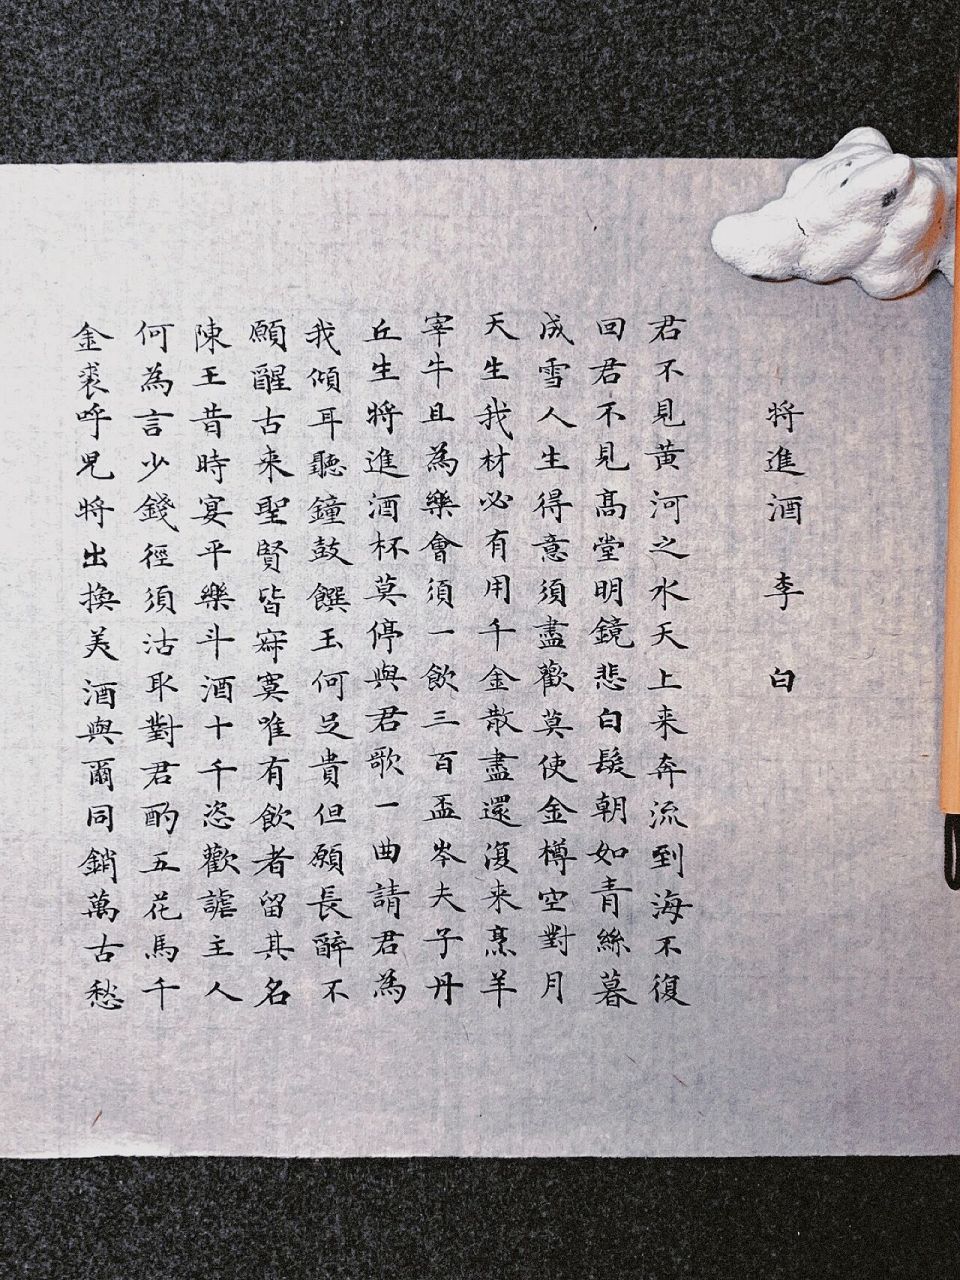 將進酒 李白
君不見黄河之水天上来奔流到海不復
回君不見髙堂明鏡悲白髮朝如青絲暮
成雪人生得意須盡歡莫使金樽空對月
天生我材必有用千金散盡還復来烹羊
宰牛且為樂會須一飲三百盃岑夫子丹
丘生將進酒杯莫停與君歌一曲請君為
我傾耳聽鐘鼓饌玉何足貴但願長醉不
願醒古来聖賢皆寂寞唯有飲者留其名
陳王昔時宴平樂斗酒十千恣歡謔主人
何為言少錢徑須沽取對君酌五花馬千
金裘呼兒將出換美酒與爾同銷萬古愁